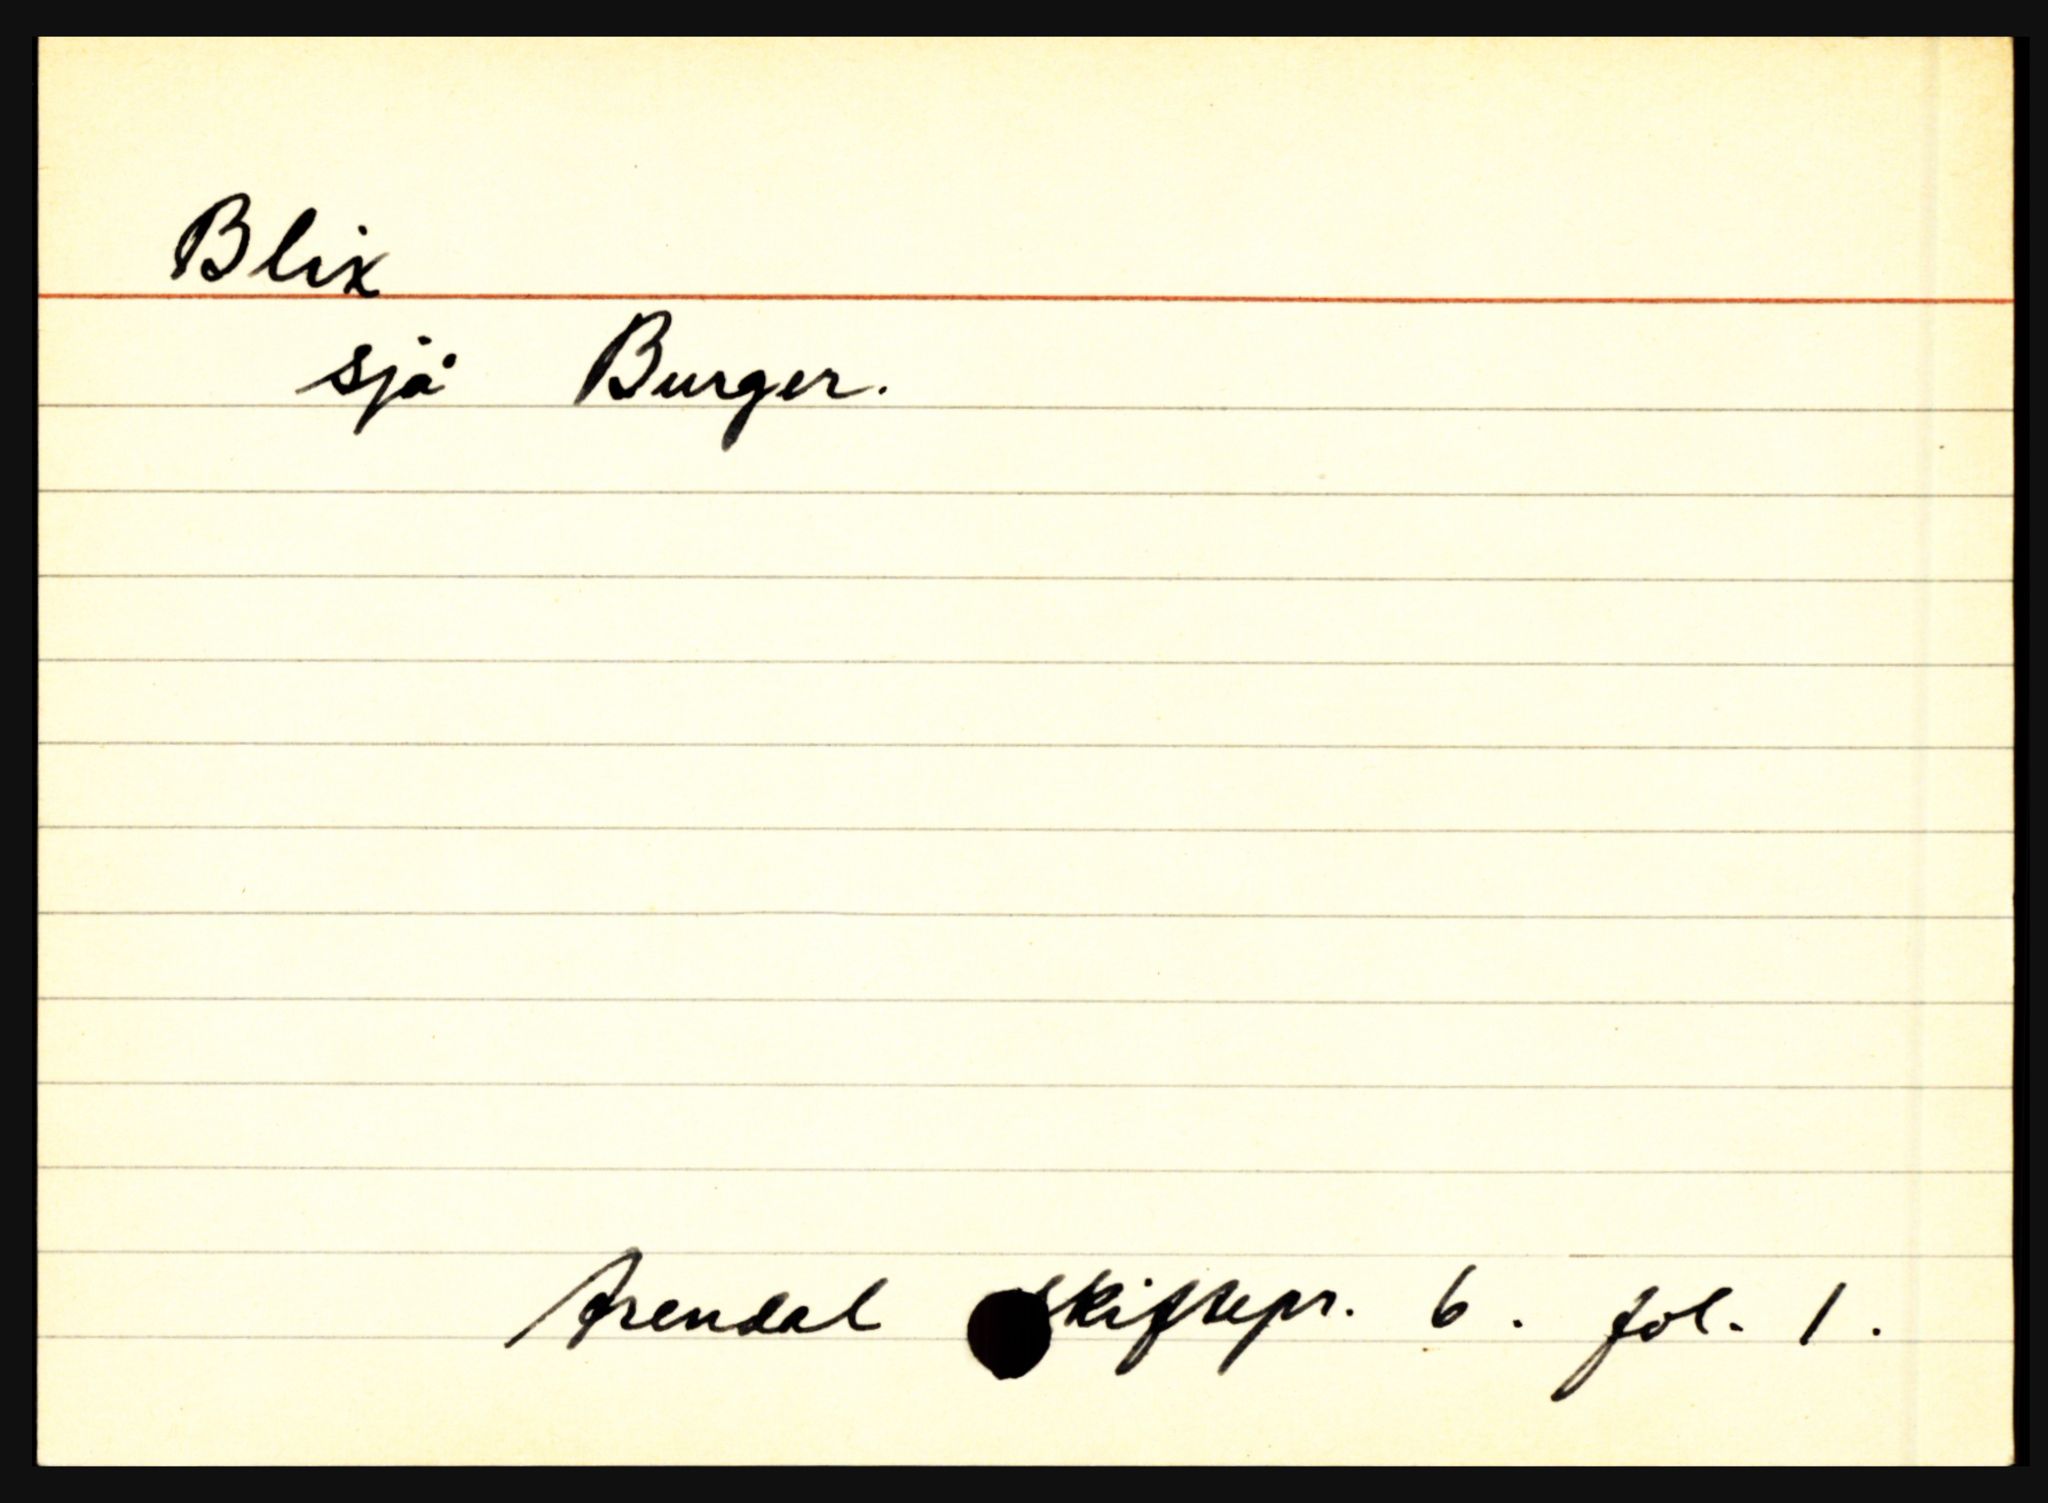 Blix
sjå Burger.
Arendal skiftepr. 6. fol. 1.